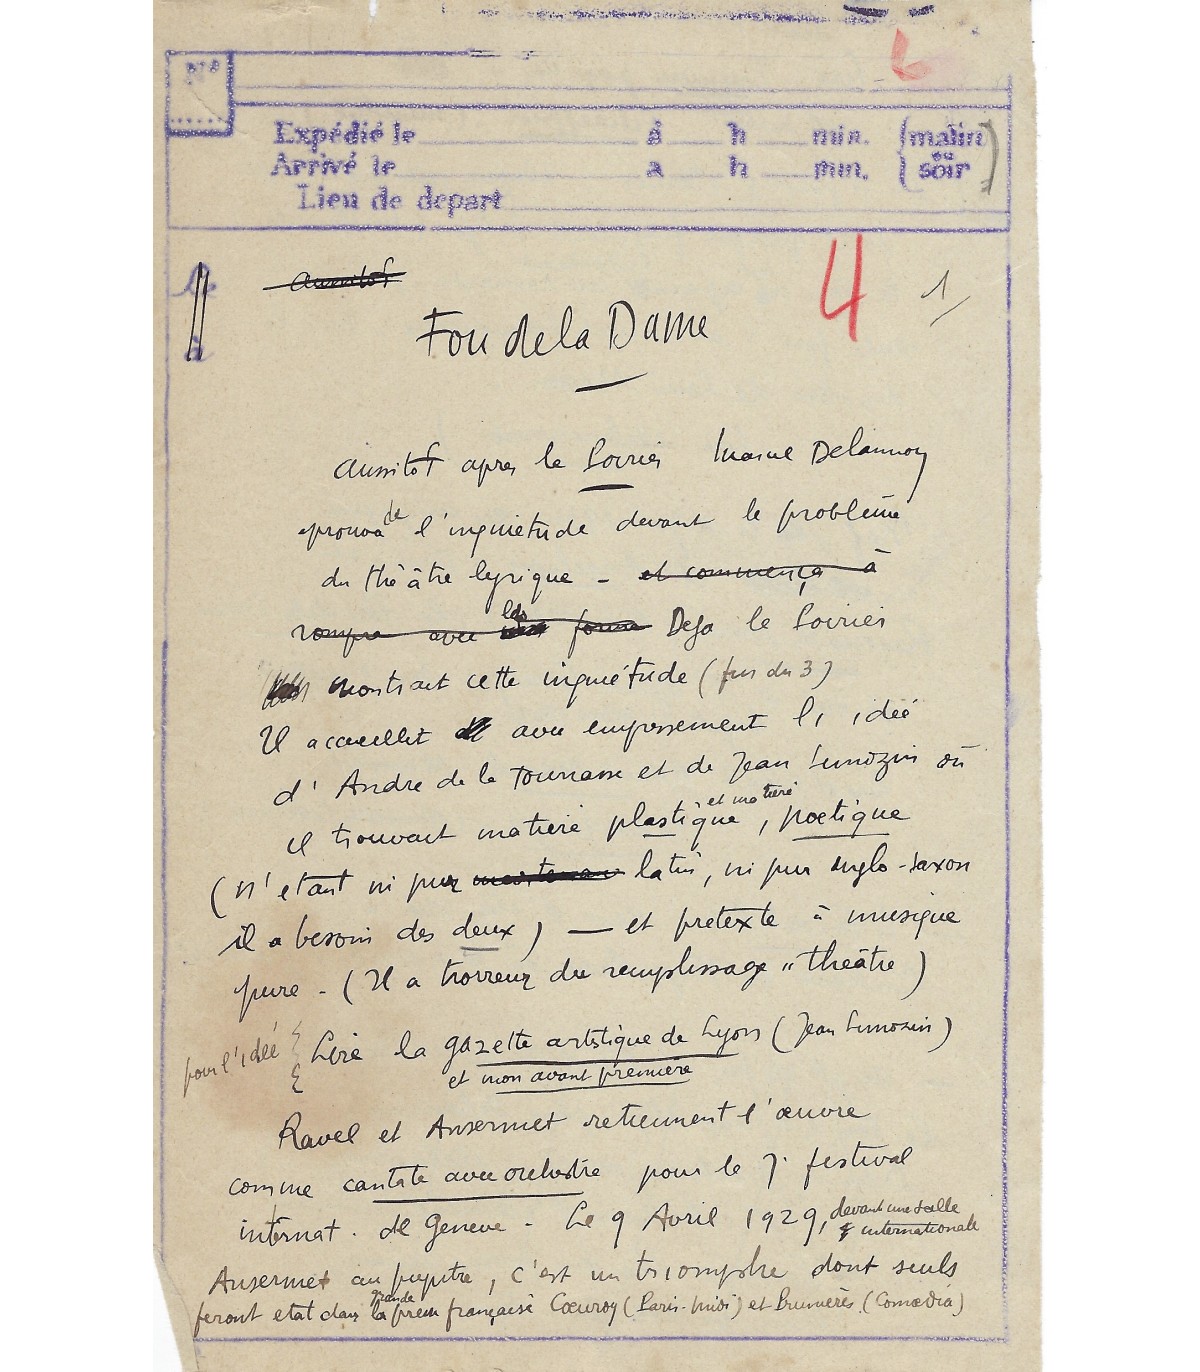 N°
Expédié le à h min. (matin)
Arrivé le a h min. (soir)
Lieu de depart
le
aussitot
4 1
Fou de la Dame
aussitot apres le Poirier Marcel Delannoy
eprouva de l'inquietude devant le problème
du théâtre lyrique - et commença à
rompre avec les forme Deja le Poirier
montrait cette inquiétude (fin du 3)
Il accueillit avec empressement l'idée
d'Andre de la Tourrasse et de Jean Limozin où
il trouvait matiere plastique, et matiere poetique
(n'étant ni pur latin, ni pur anglo-saxon
il a besoin des deux) — et pretexte à musique
pure - (Il a horreur du remplissage "théâtre)
pour l'idée Lire la gazette artistique de Lyon (Jean Limozin)
et mon avant première
Ravel et Ansermet retiennent l'œuvre
comme cantate avec orchestre pour le 7e festival
internat. de Geneve - Le 9 Avril 1929, devant une salle internationale
Ansermet au pupitre, c'est un triomphe dont seuls
feront etat dans la grande presse française Cœuroy (Paris-Midi) et Prunières (Comœdia)